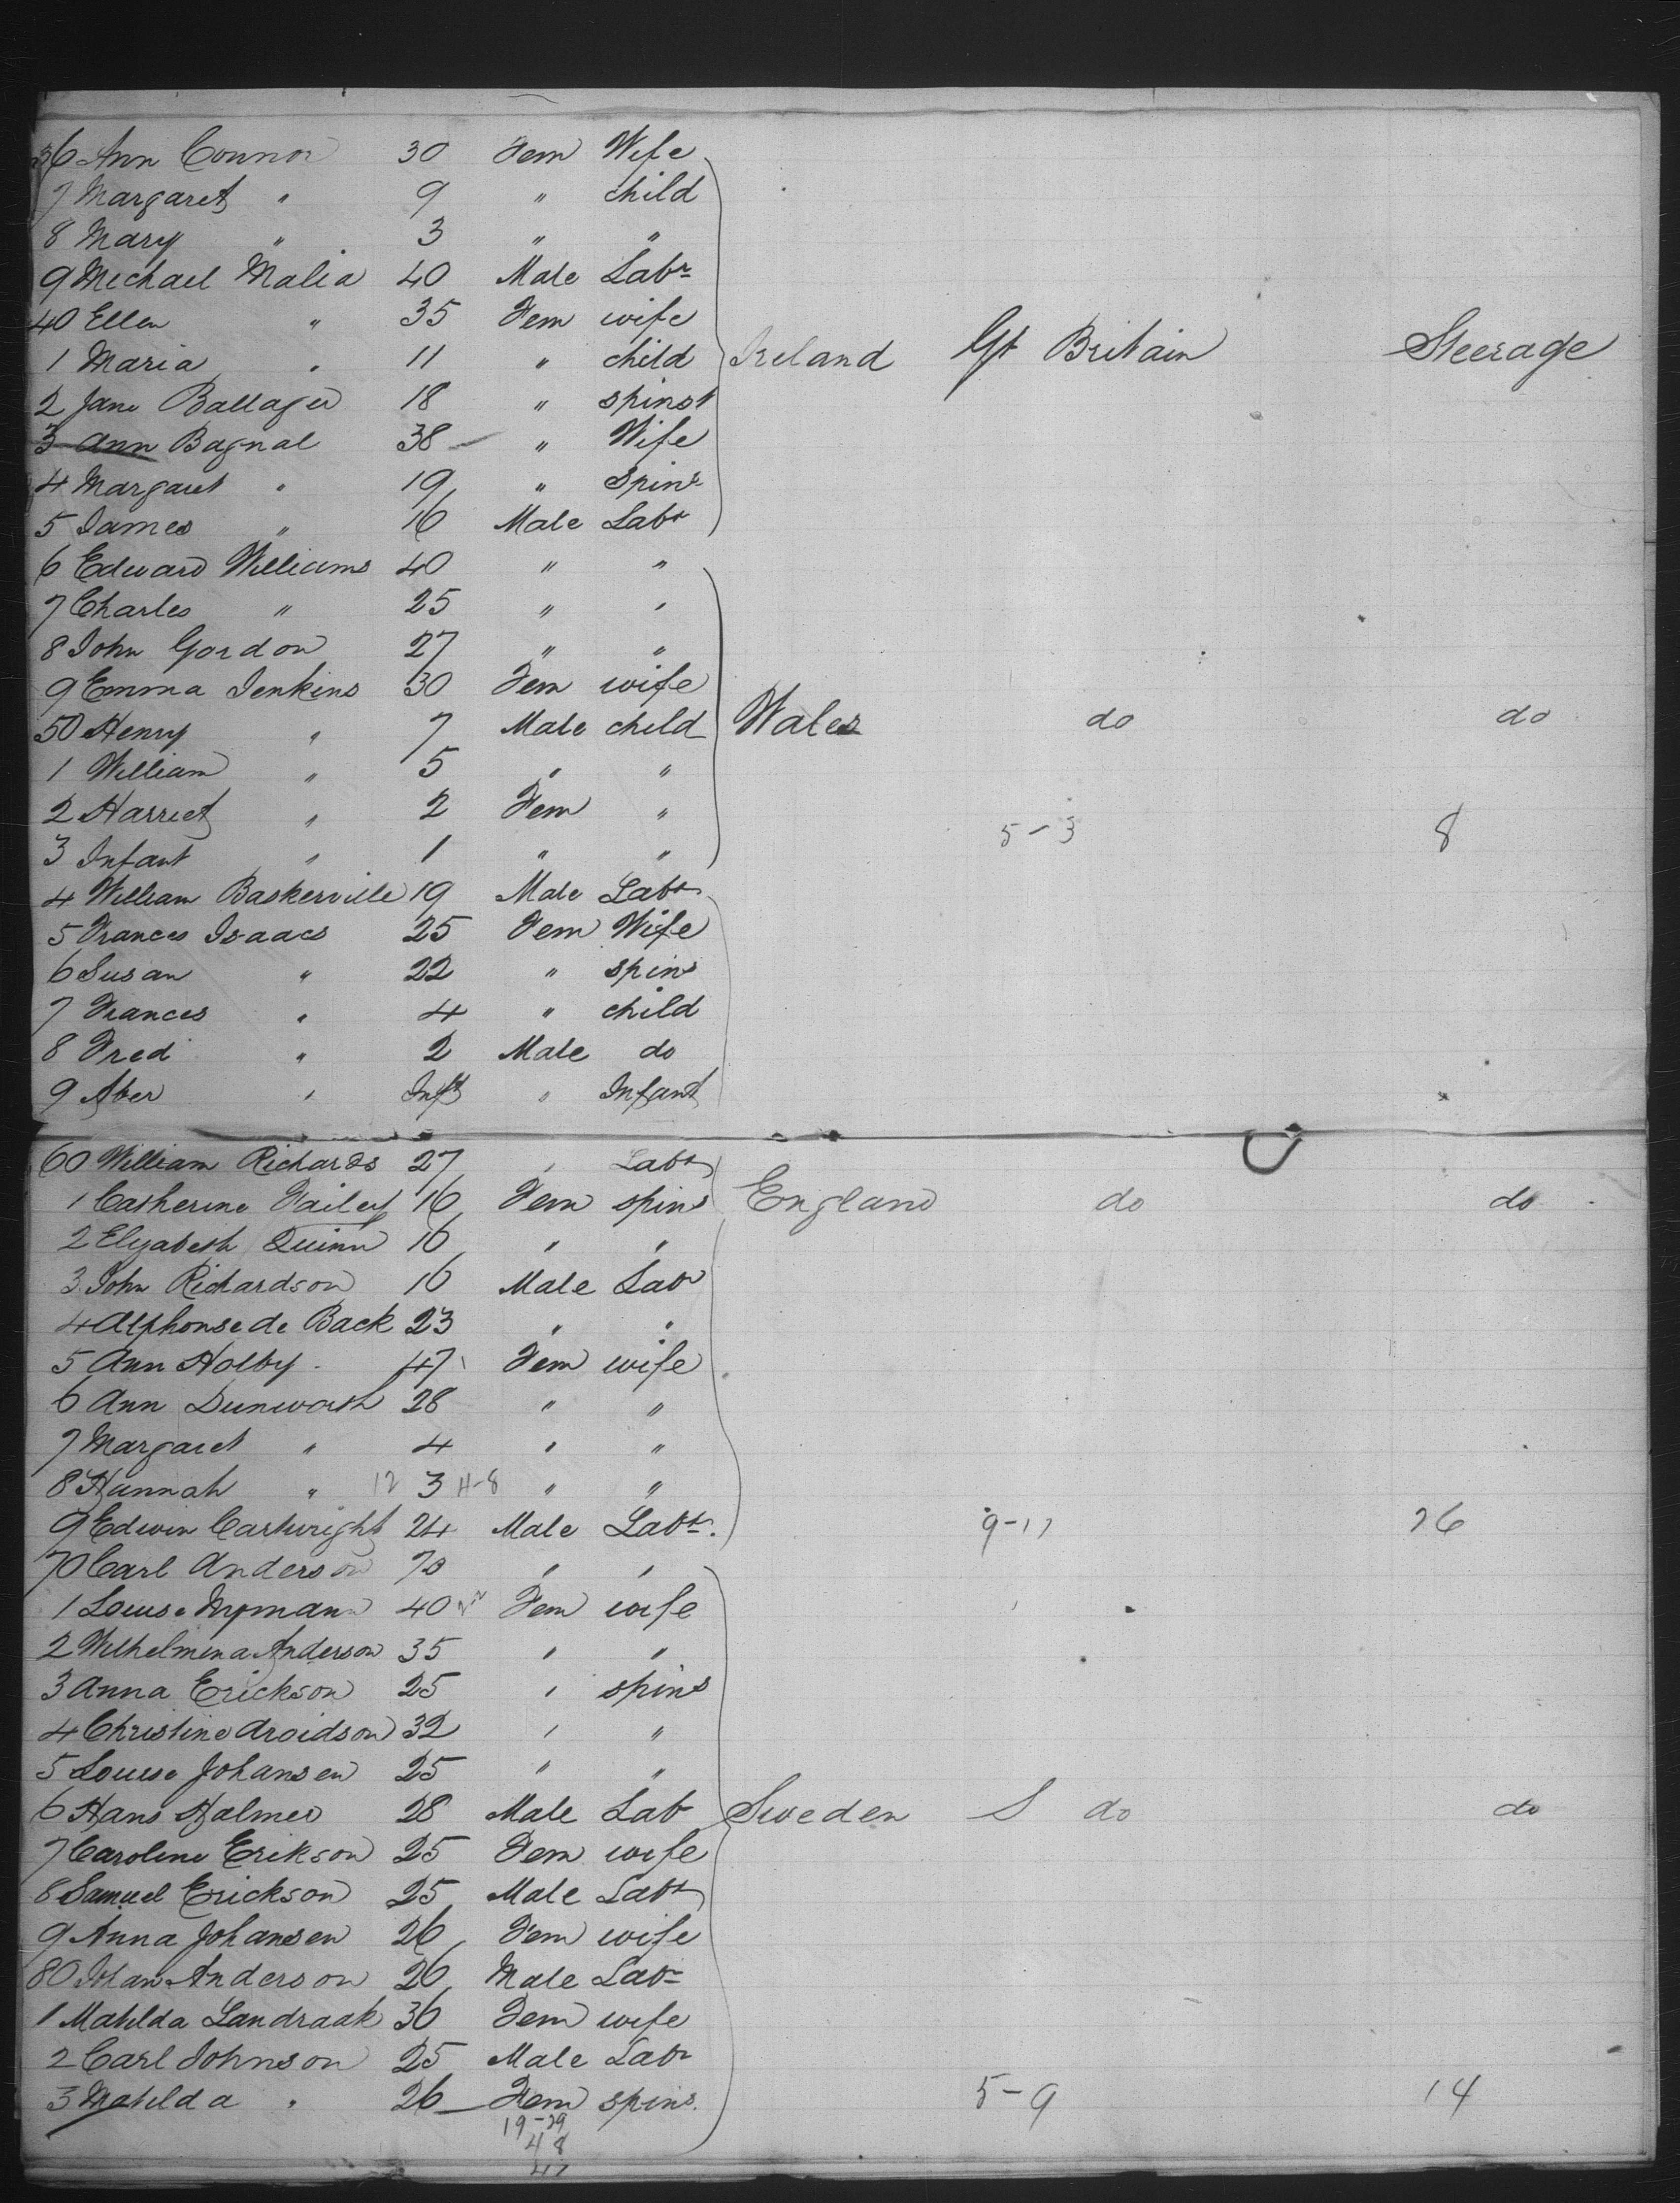 36 Ann Connor 30 Fem Wife
7 Margaret " 9 " child
8 Mary " 3 " "
9 Michael Malia 40 Male Labr
40 Ellen " 35 Fem wife
1 Maria " 11 " child Ireland Gt Britain Steerage
2 Jane Ballager 18 " spinst
3 Ann Bagnal 38 " Wife
4 Margaret " 19 " Spins
5 James " 16 Male Labr
6 Edward Williams 40 " "
7 Charles " 25 " "
8 John Gordon 27 " "
9 Emma Jenkins 30 Fem wife
50 Henry " 7 Male child Wales do do
1 William " 5 " "
2 Harriet " 2 Fem " 5-3 8
3 Infant " 1 " "
4 William Baskerville 19 Male Labr
5 Frances Isaacs 25 Fem Wife
6 Susan " 22 " spins
7 Frances " 4 " child
8 Fred " 2 Male do
9 " Inft " Infant
60 William Richards 27 " Labr
1 Catherine Failey 16 Fem spins England do do
2 Elizabeth Quinn 16 " "
3 John Richardson 16 Male Labr
4 Alphonse de Back 23 " "
5 Ann Holby 47 Fem wife
6 Ann Dunworth 28 " "
7 Margaret " 4 " "
8 Hannah " 12 3 4-8 " "
9 Edwin Cartwright 24 Male Labr 9-17 26
70 Carl Anderson " "
1 Louise 40 Fem wife
2 Wilhelmina Anderson 35 " "
3 Anna Erickson 25 " spins
4 Christine Aroidson 32 " "
5 Louise Johansen 25 " "
6 Hans Halmer 28 Male Lab Sweden S do do
7 Caroline Erikson 25 Fem wife
8 Samuel Erickson 25 Male Labr
9 Anna Johansen 26 Fem wife
80 Johan Anderson 26 Male Labr
1 Matilda Landraak 36 Fem wife
2 Carl Johnson 25 Male Labr
3 Matilda " 26 Fem spins. 5-9 14
19-29
48